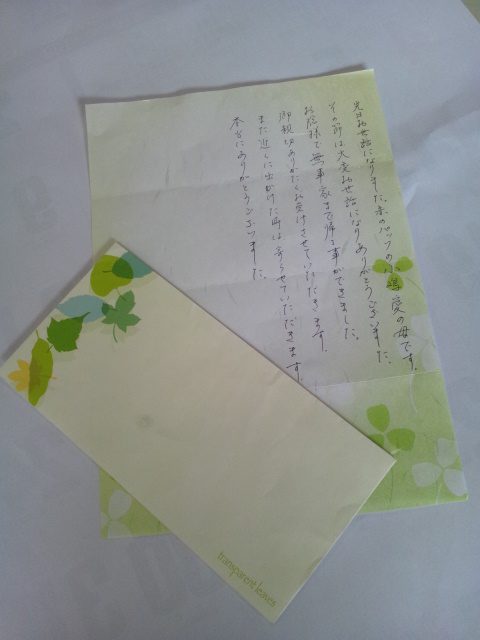 先日お世話になりました。赤のバッグの小嶋愛の母です。
その節は大変お世話になりありがとうございました。
お陰様で無事家まで帰る事ができました。
御親切ありがたくお受けさせていただきます。
また近くに出かけた時は寄らせていただきます。
本当にありがとうございました。
transparent leaves